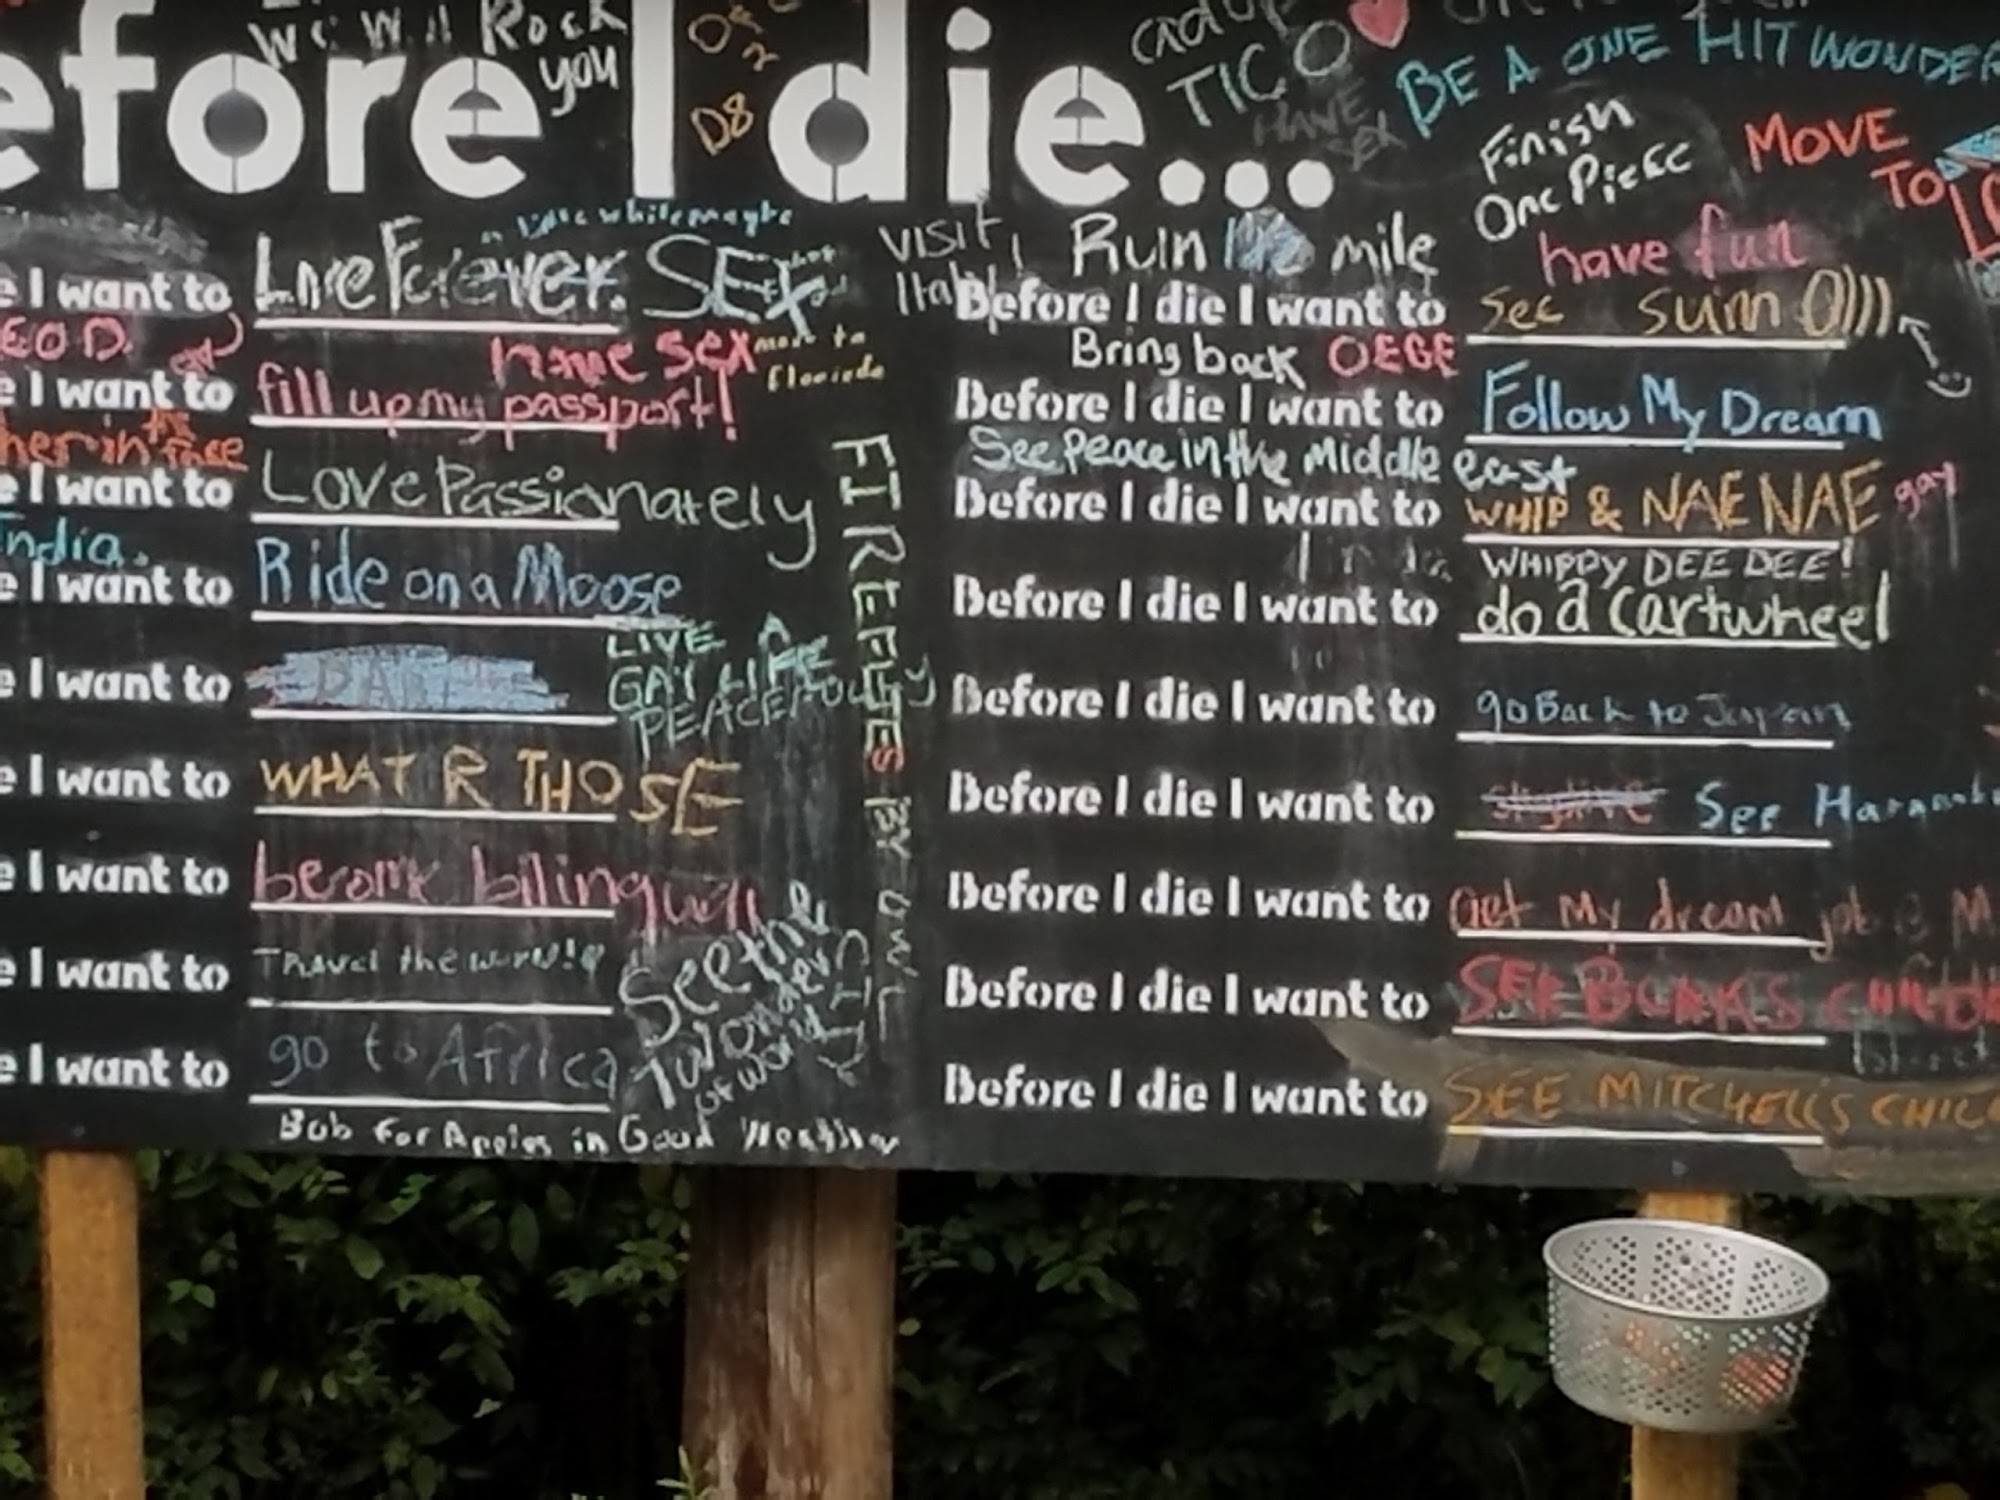 We Will Rock
you
efore I die...
TICO
HAVE
SEX
BE A ONE HIT WONDER
Finish
One Piece
MOVE
TO
have fun
a little while maybe
e I want to Live Forever. SEX
have sex
move to
e I want to fill up my passport!
her in the face
e I want to Love Passionately
India.
e I want to Ride on a Moose
LIVE A
GAY LIFE
PEACEFULLY
e I want to
e I want to WHAT R THOSE
e I want to become bilingual
e I want to Travel the world!
See the
7 wonders
of world
e I want to go to Africa
Bob for Apples in Good Weather
FIREFLIES BY OWL
CITY
VISIT
Italy
Run mile
Before I die I want to See Sum O))))
Bring back OEGE
Before I die I want to Follow My Dream
See Peace in the Middle east
Before I die I want to WHIP & NAE NAE gay
WHIPPY DEE DEE!
Before I die I want to do a cartwheel
Before I die I want to go Back to Japan
Before I die I want to See
Before I die I want to Get My dream job @ M
Before I die I want to SEE
Before I die I want to SEE MITCHELLS